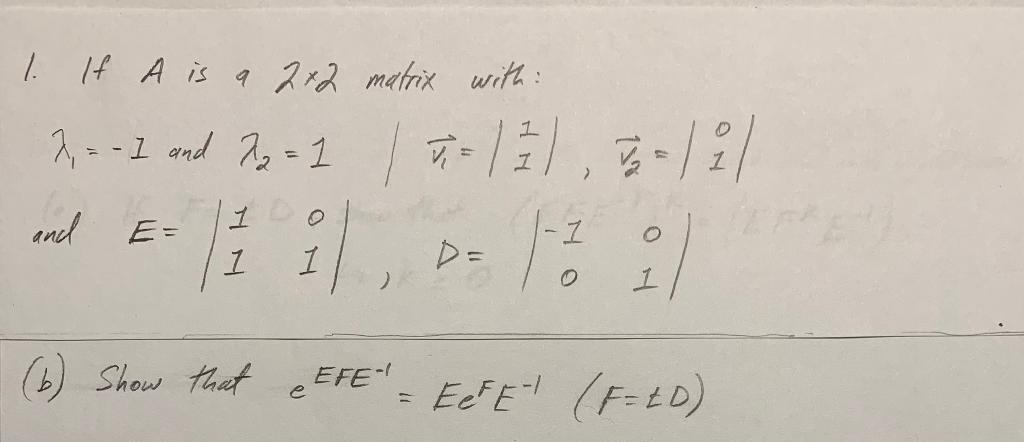 1. If A is a 2×2 matrix with:
λ₁ = -1 and λ₂ = 1 | v⃗₁ = |1 1|, v⃗₂ = |0 1|
and E = |1 0
1 1|, D = |-1 0
0 1|
(b) Show that e^{EFE⁻¹} = Ee^{F}E⁻¹ (F=tD)